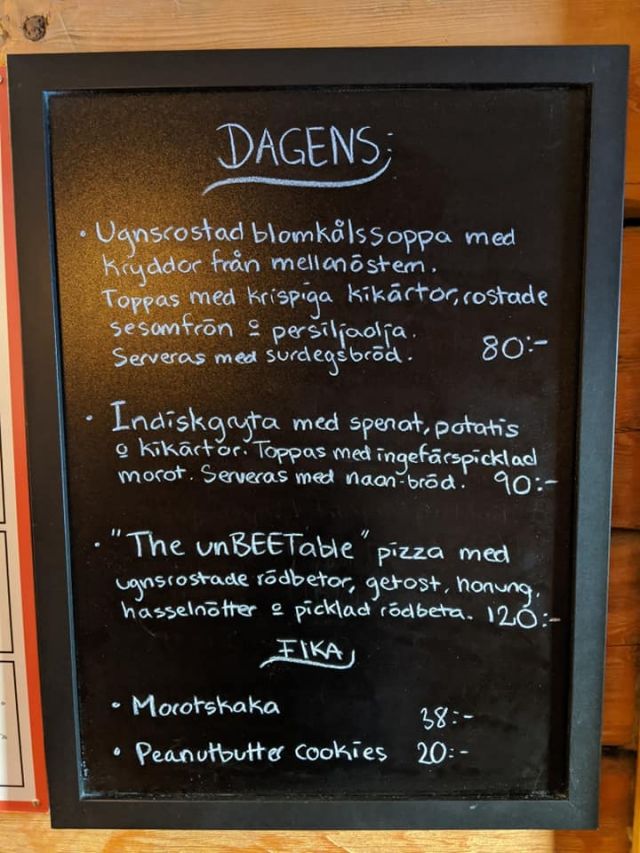 DAGENS:
• Ugnsrostad blomkålssoppa med
kryddor från mellanöstern.
Toppas med krispiga kikärtor, rostade
sesamfrön o persiljaolja.
Serveras med surdegsbröd. 80:-
• Indiskgryta med spenat, potatis
o kikärtor. Toppas med ingefärspicklad
morot. Serveras med naan-bröd. 90:-
• "The unBEETable" pizza med
ugnsrostade rödbetor, getost, honung,
hasselnötter o picklad rödbeta. 120:-
FIKA
• Morotskaka 38:-
• Peanutbutter cookies 20:-